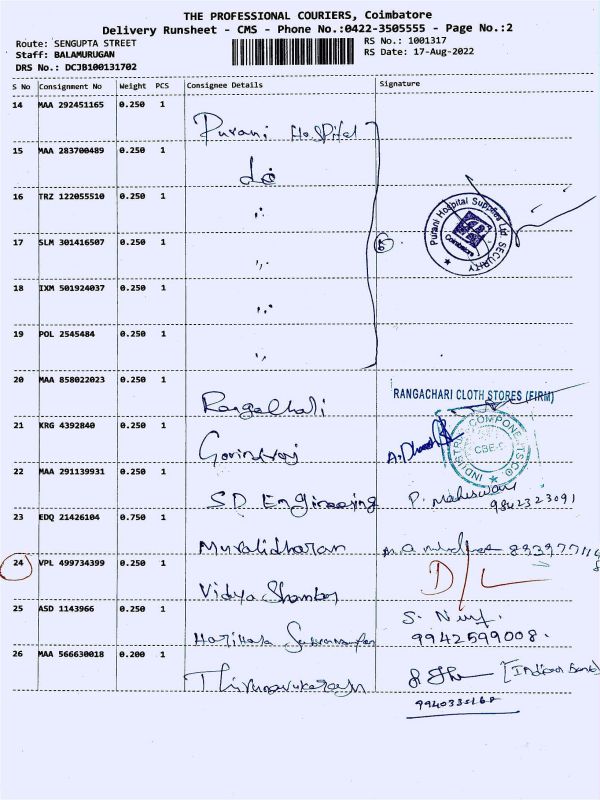 THE PROFESSIONAL COURIERS, Coimbatore
Delivery Runsheet - CMS - Phone No.:0422-3505555 - Page No.:2
Route: SENGUPTA STREET
RS No.: 1001317
Staff: BALAMURUGAN
RS Date: 17-Aug-2022
DRS No.: DCJB100131702
S No Consignment No Weight PCS Consignee Details Signature
14 MAA 292451165 0.250 1 Purani Hospital
15 MAA 283700489 0.250 1 do
16 TRZ 122055510 0.250 1
Purani Hospital Supplies Ltd SECURITY
Coimbatore
17 SLM 301416507 0.250 1
18 IXM 501924037 0.250 1
19 POL 2545484 0.250 1
20 MAA 858022023 0.250 1 Rangachari
RANGACHARI CLOTH STORES (FIRM)
21 KRG 4392840 0.250 1 Govindraj
INDUSTRIAL COMPONENTS CO
CBE-
22 MAA 291139931 0.250 1 SD Engineering P. Maheswari
9842323091
23 EDQ 21426104 0.750 1 Muralidharan
24 VPL 499734399 0.250 1 Vidya Shankar D/L
25 ASD 1143966 0.250 1 Harihara S.
9942599008.
26 MAA 566630018 0.200 1 Thirunavukarasu [Indian Bank]
9940335168